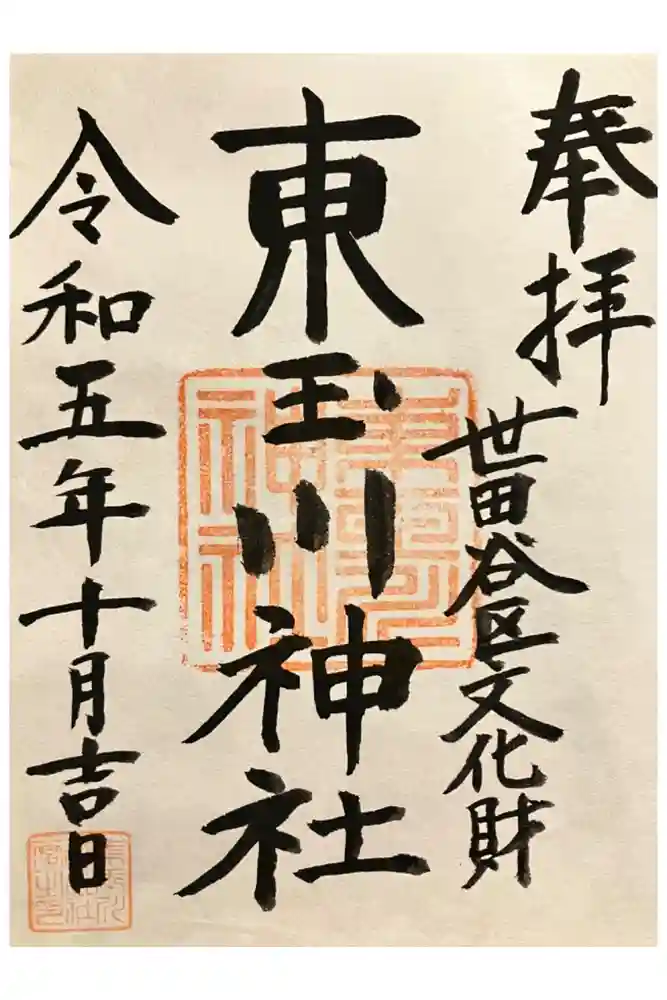 奉拝
世田谷区文化財
東玉川神社
令和五年十月吉日